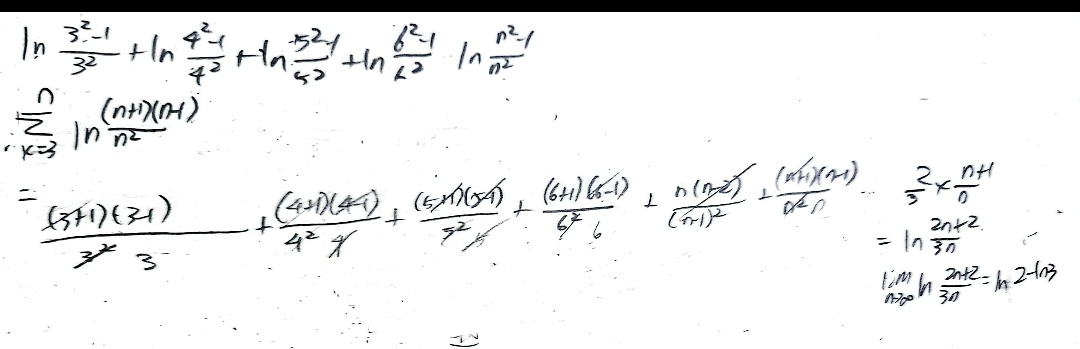 ln 3²-1/3² + ln 4²-1/4² + ln 5²-1/5² + ln 6²-1/6² ln n²-1/n²
n Σ k=3 ln (n+1)(n-1)/n²
= (3+1)(3-1)/3² 3 + (4+1)(4-1)/4² 4 + (5+1)(5-1)/5² 5 + (6+1)(6-1)/6² 6 + n(n-2)/(n-1)² + (n+1)(n-1)/n² n
2/3 × n+1/n
= ln 2n+2/3n
lim n→∞ ln 2n+2/3n = ln 2-ln3